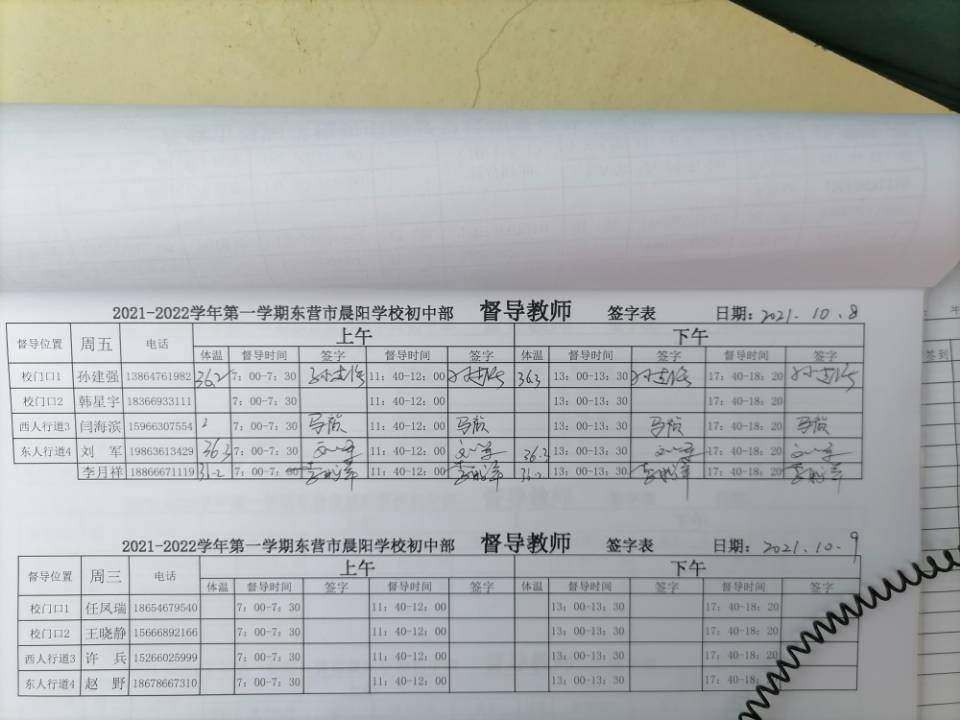 2021-2022学年第一学期东营市晨阳学校初中部 督导教师 签字表 日期：2021.10.8
督导位置 周五 电话 上午 下午
体温 督导时间 签字 督导时间 签字 体温 督导时间 签字 督导时间 签字
校门口1 孙建强 13864761982 36.2 7：00-7：30 孙建强 11：40-12：00 孙建强 36.3 13：00-13：30 孙建强 17：40-18：20 孙建强
校门口2 韩星宇 18366933111 7：00-7：30 11：40-12：00 13：00-13：30 17：40-18：20
西人行道3 闫海滨 15966307554 7：00-7：30 11：40-12：00 13：00-13：30 17：40-18：20
东人行道4 刘 军 19863613429 36.3 7：00-7：30 刘军 11：40-12：00 刘军 36.2 13：00-13：30 刘军 17：40-18：20 刘军
李月祥 18866671119 7：00-7： 李月祥 11：40-12：00 李月祥 13：00-13：30 李月祥 17：40-18：20 李月祥
2021-2022学年第一学期东营市晨阳学校初中部 督导教师 签字表 日期：2021.10.9
督导位置 周三 电话 上午 下午
体温 督导时间 签字 督导时间 签字 体温 督导时间 签字 督导时间 签字
校门口1 任凤瑞 18654679540 7：00-7：30 11：40-12：00 13：00-13：30 17：40-18：20
校门口2 王晓静 15666892166 7：00-7：30 11：40-12：00 13：00-13：30 17：40-18：20
西人行道3 许 兵 15266025999 7：00-7：30 11：40-12：00 13：00-13：30 17：40-18：20
东人行道4 赵 野 18678667310 7：00-7：30 11：40-12：00 13：00-13：30 17：40-18：
年
签到